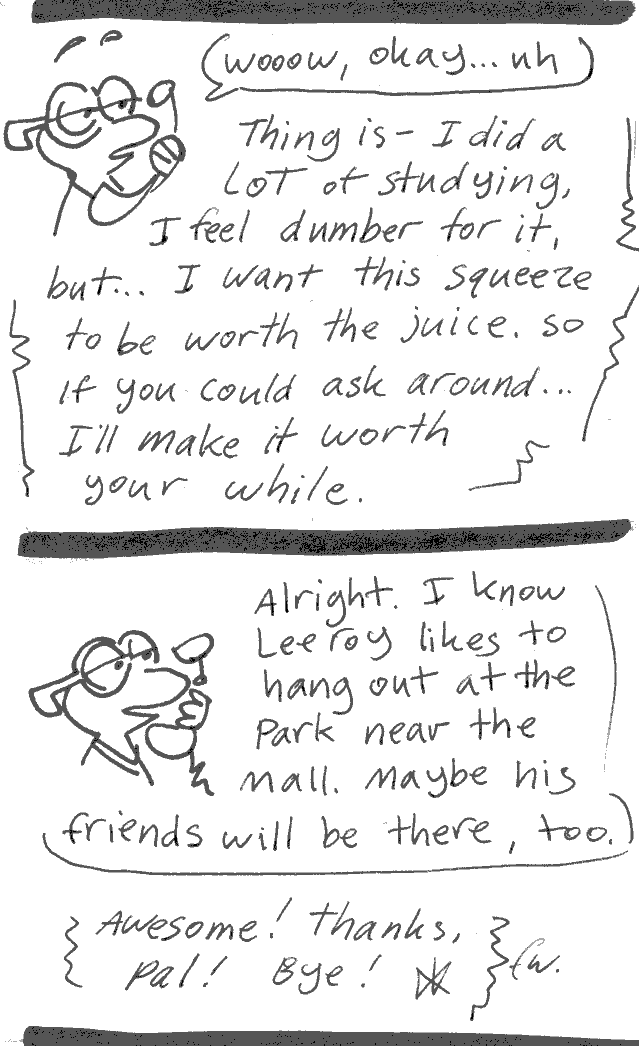 wooow, okay... uh
Thing is - I did a
LOT of studying,
I feel dumber for it,
but... I want this squeeze
to be worth the juice. so
if you could ask around...
I'll make it worth
your while.
Alright. I know
Leeroy likes to
hang out at the
Park near the
mall. maybe his
friends will be there, too.
Awesome! thanks,
pal! Bye!
fw.